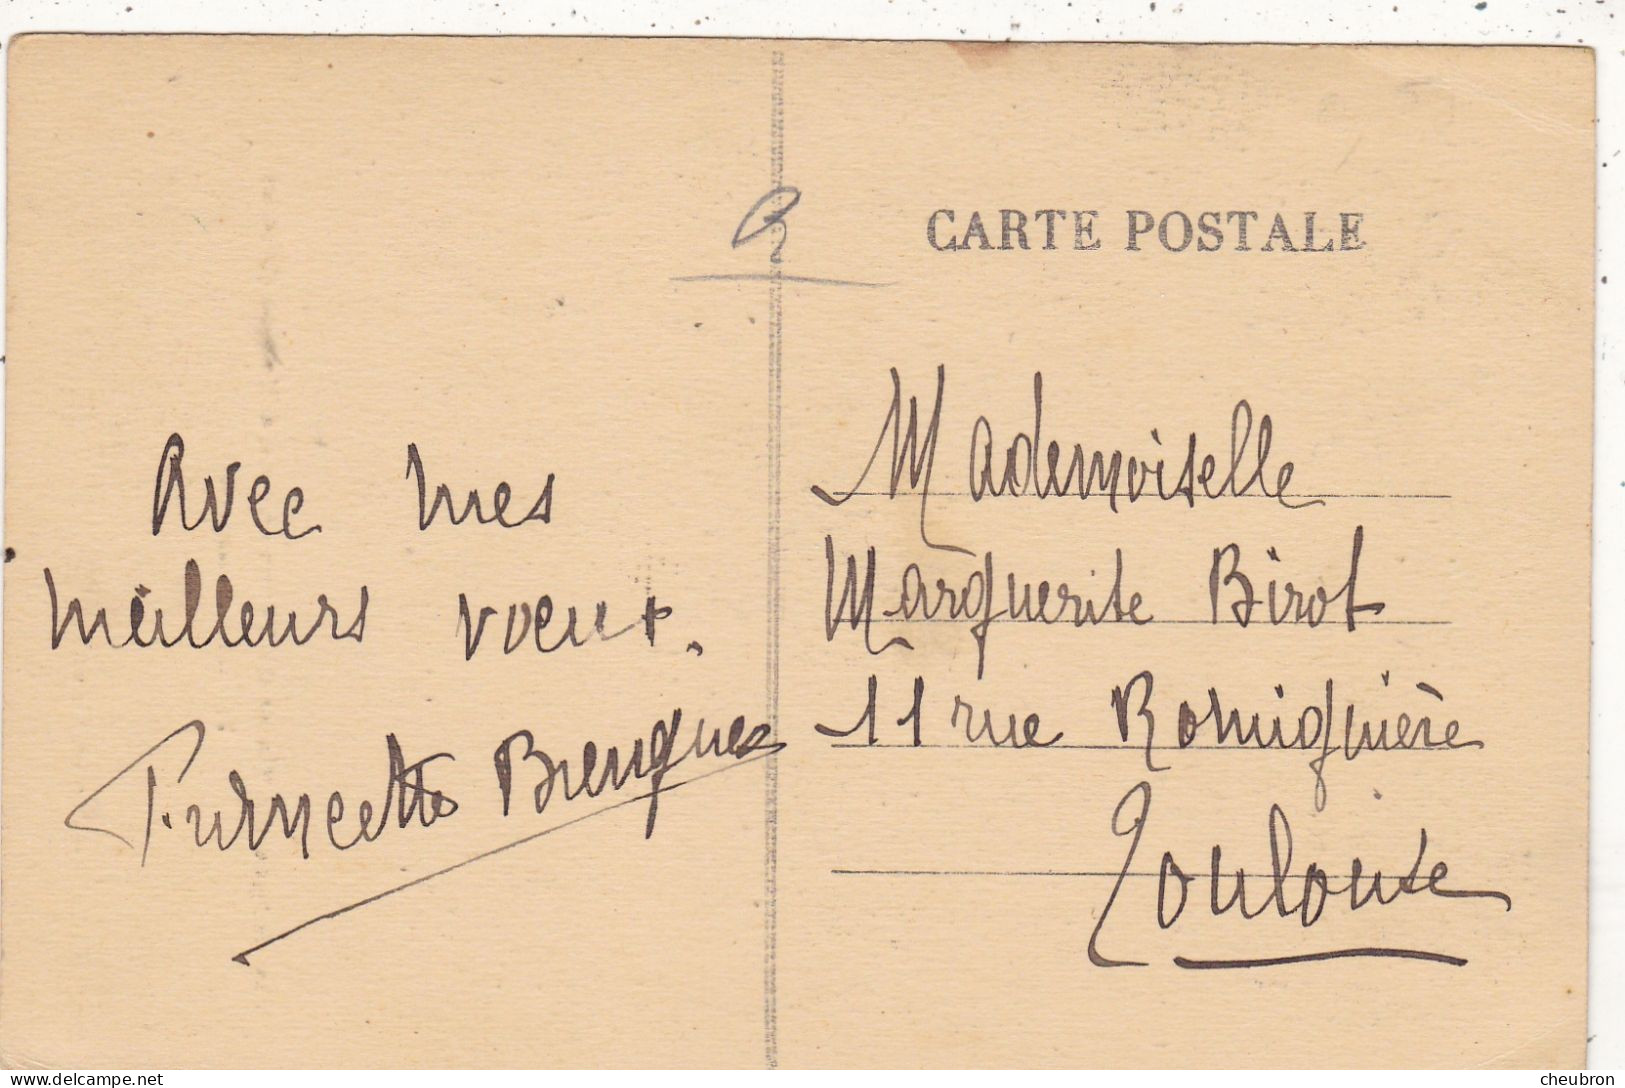 CARTE POSTALE
Avec mes
meilleurs voeux.
Mademoiselle
Marguerite Birot
11 rue Romiguière
Toulouse
delcampe.net
cheubron